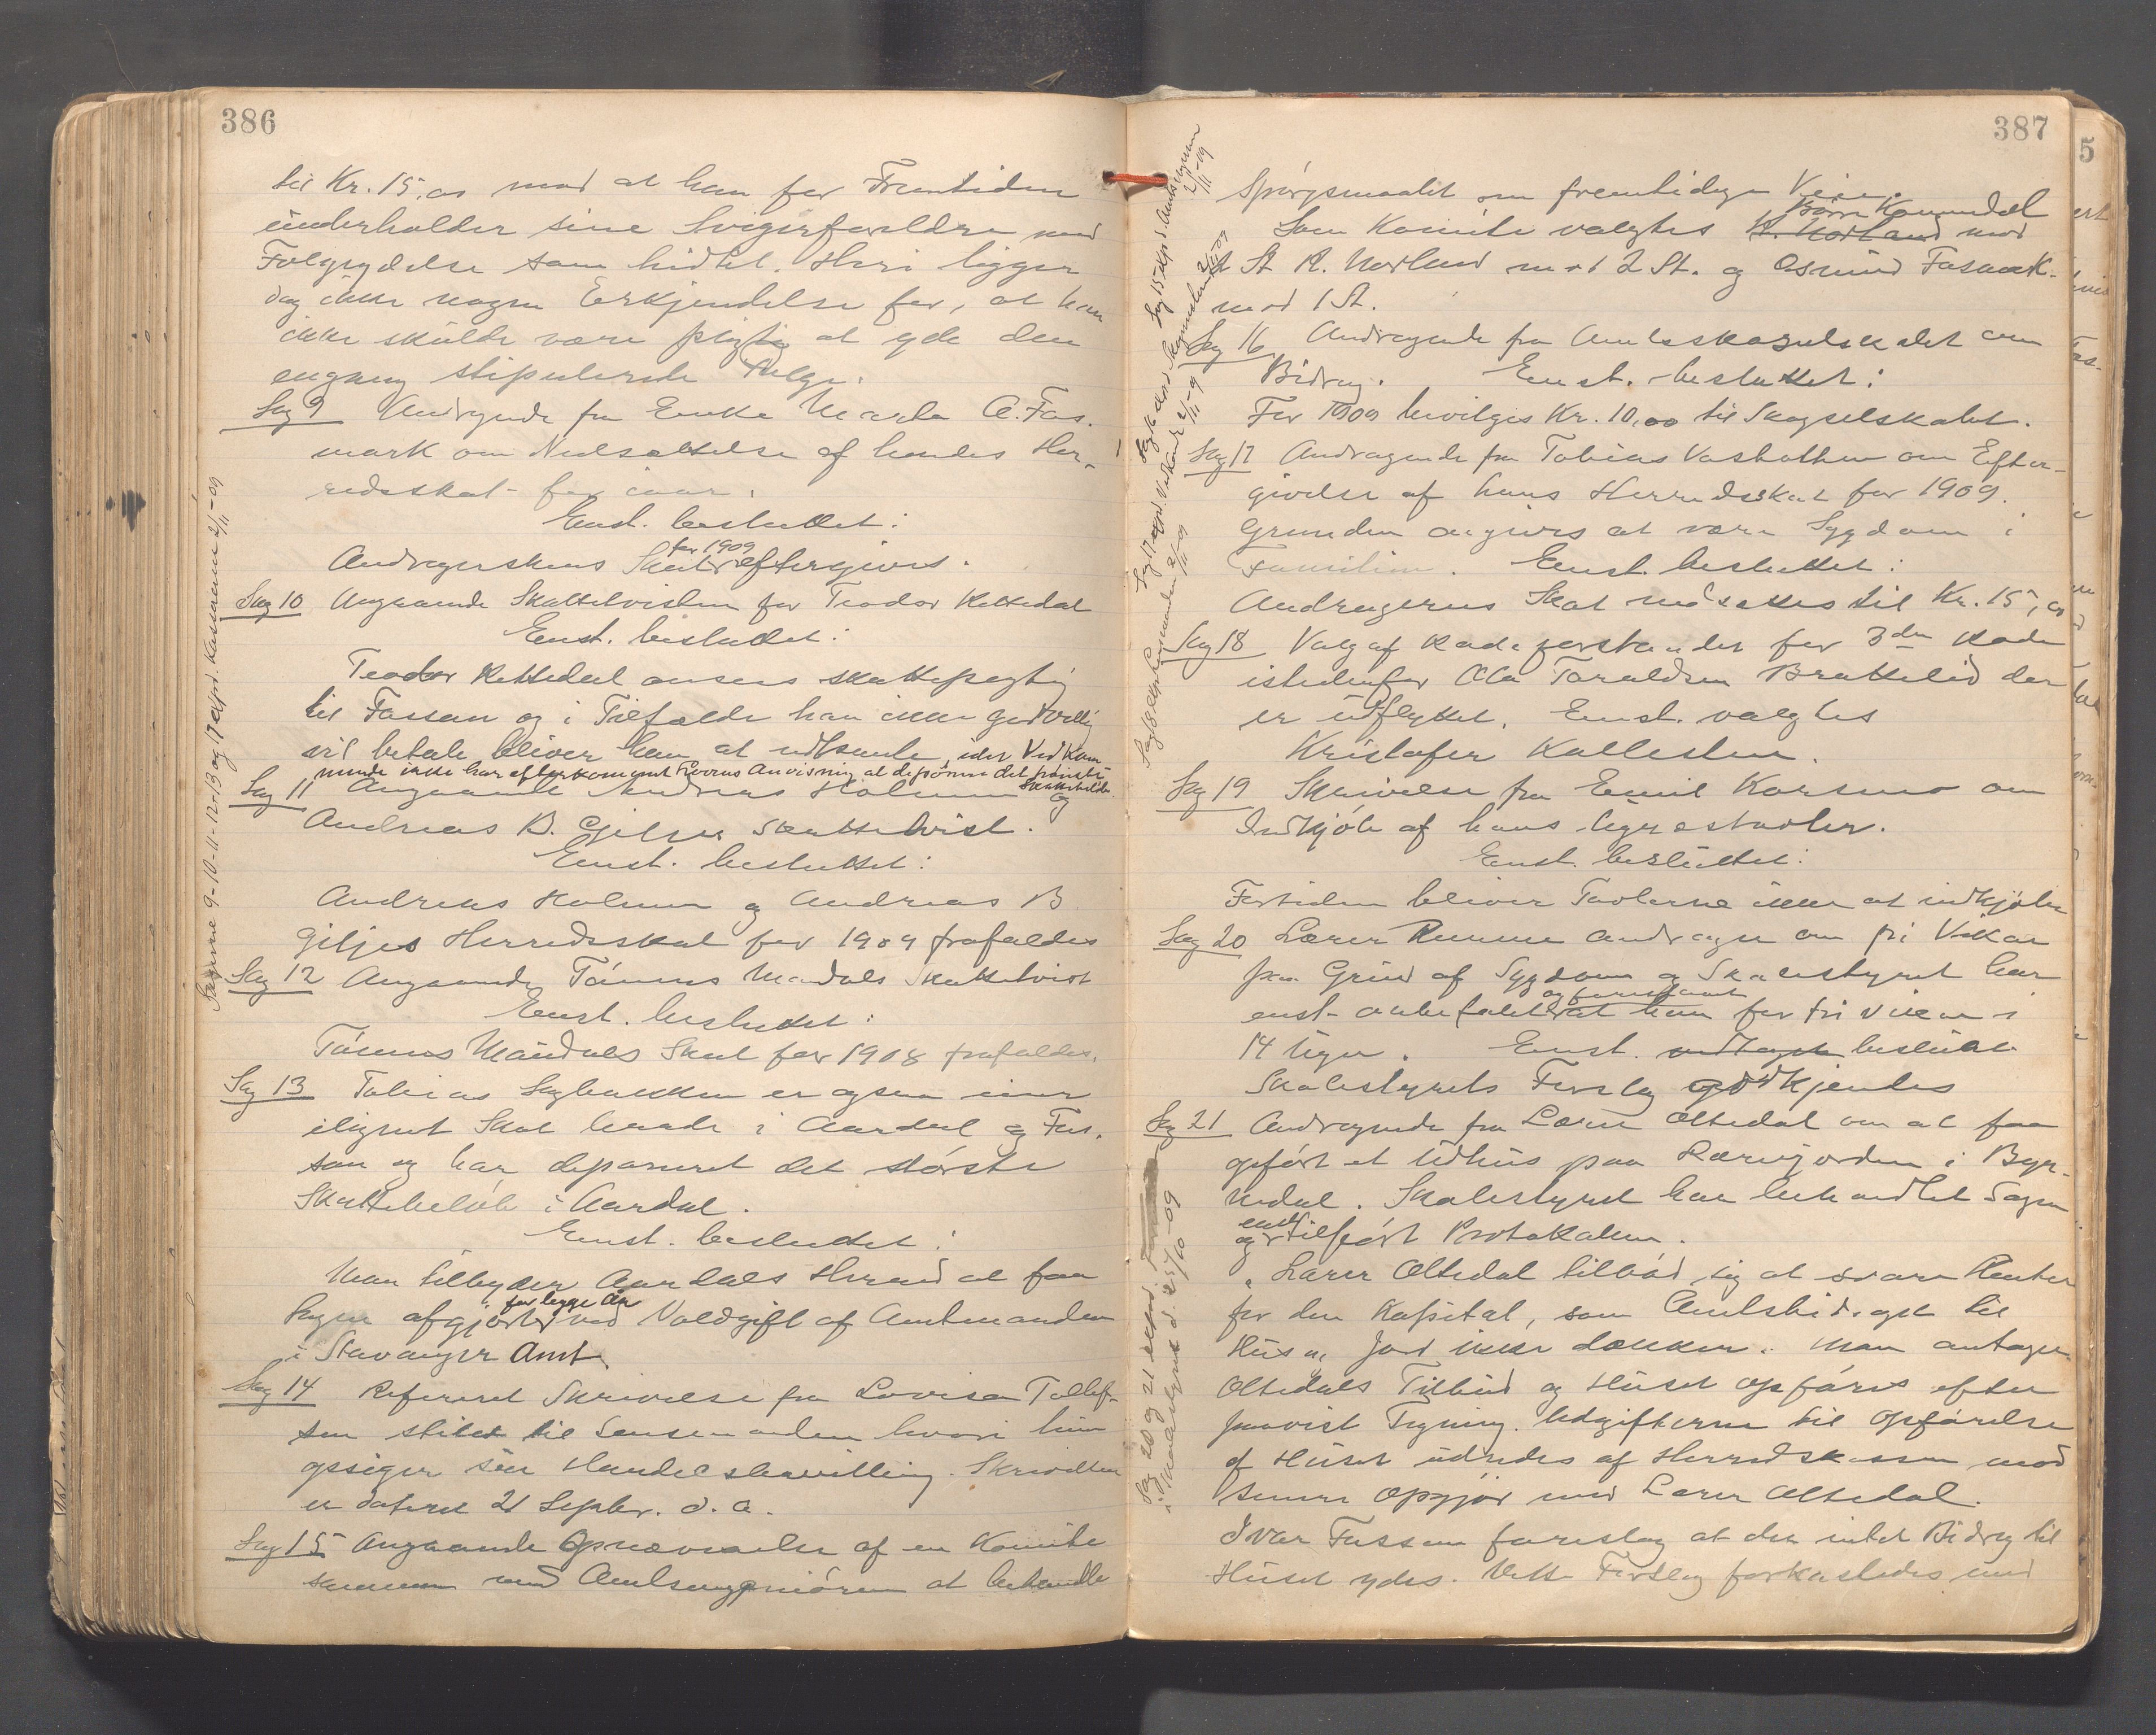 386
til Kr. 15,00 mod at han for Fremtiden
underholder sine Svigerforældre med
Følgeydelse som hidtil. Heri ligger
dog ikke nogen Erkjendelse for, at han
ikke skulde være pligtig at yde den
engang stipulerede Følge.
Sag 9 Andragende fra Enke Marta A. Fas-
mark om Nedsættelse af hendes Her-
redsskat for iaar.
Enst. besluttet:
Andragerskens Skat for 1909 eftergives.
Sag 10 Angaaende Skattetvisten for Teodor Kettedal
Enst. besluttet:
Teodor Kettedal ansees skattepligtig
til Fossan og i Tilfælde han ikke godvillig
vil betale bliver han at udpante, idet Vedkom-
mende ikke har efterkommet Lovens Anvisning at deponere det
Sag 11 Angaaende Andreas Holmen og
Andreas B. Giljes Skattetvist.
Enst. besluttet:
Andreas Holmen og Andreas B
Giljes Herredsskat for 1909 frafaldes
Sag 12 Angaaende Tønnes Maudals Skattetvist
Enst. besluttet:
Tønnes Maudals Skat for 1908 frafaldes.
Sag 13 Tobias Sagbakken er ogsaa iaar
ilignet Skat baade i Aardal og Fos-
san og har deponeret det største
Skattebeløb i Aardal.
Enst. besluttet:
Man tilbyder Aardals Herred at faa
Sagen afgjort for begge Aar ved Voldgift af Amtmanden
i Stavanger Amt.
Sag 14 Refereret Skrivelse fra Lovisa Tollef-
sen stilet til Lensmanden hvori hun
opsiger sin Handelsbevilling. Skrivelsen
er dateret 21 Septbr. d. A.
Sag 15 Angaaende Opnævnelse af en Komite
sammen med Amtsingeniøren at behandle
Sagerne 9-10-11-12-13 og 17 exped. Kassereren 2/11-09
387
Spørgsmaalet om fremtidige Veie.
Som Komite valgtes K. Norland Børre Kommedal med
St K. Norland med 2 St. og Osmund Fasmark
med 1 St.
Sag 16 Andragende fra Amtsskogselskabet om
Bidrag. Enst. besluttet:
For 1909 bevilges Kr. 10,00 til Skogselskabet.
Sag 17 Andragende fra Tobias Vasbotten om Efter-
givelse af hans Herredsskat for 1909.
Grunden angives at være Sygdom i
Familien. Enst. besluttet:
Andragerens Skat nedsættes til Kr. 15,00
Sag 18 Valg af Rodeforstander for 3die Rode
istedenfor Ola Taraldsen Brattelid der
er udflyttet. Enst. valgtes
Kristofer Kallesten.
Sag 19 Skrivelse fra Emil Korsmo om
Indkjøb af hans Ugræstavler.
Enst. besluttet:
Fortiden bliver Tavlerne ikke at indkjøbe
Sag 20 Lærer Remme andrager om fri Vikar
paa Grund af Sygdom og Skolestyret har
enst. anbefalet og foreslaaet at han faar fri Vikar i
14 Uger. Enst. vedtoges besluttet
Skolestyrets Forslag godkjendes
Sag 21 Andragende fra Lærer Oltedal om at faa
opført et Udhus paa Lærerjorden i Byr-
kedal. Skolestyret har behandlet Sagen
og enst. tilført Protokollen.
„Lærer Oltedal tilbød sig at svare Renter
for den Kapital, som Amtsbidraget til
Hus og Jord ikke dækker. Man antager
Oltedals Tilbud og Huset opføres efter
paavist Tegning. Udgifterne til Opførelse
af Huset udredes af Herredskassen mod
senere Opgjør med Lærer Oltedal.
Ivar Fossan foreslog at der intet Bidrag til
Huset ydes. Dette Forslag forkastedes med
Sag 15 exped. Amtsingeniøren 2/11-09
Sag 17 exped. Vedkommende 2/11-09
Sag 18 exped. Lensmanden 2/11-09
Sag 20 og 21 exped.
i Skolestyret d. 25/10-09
5